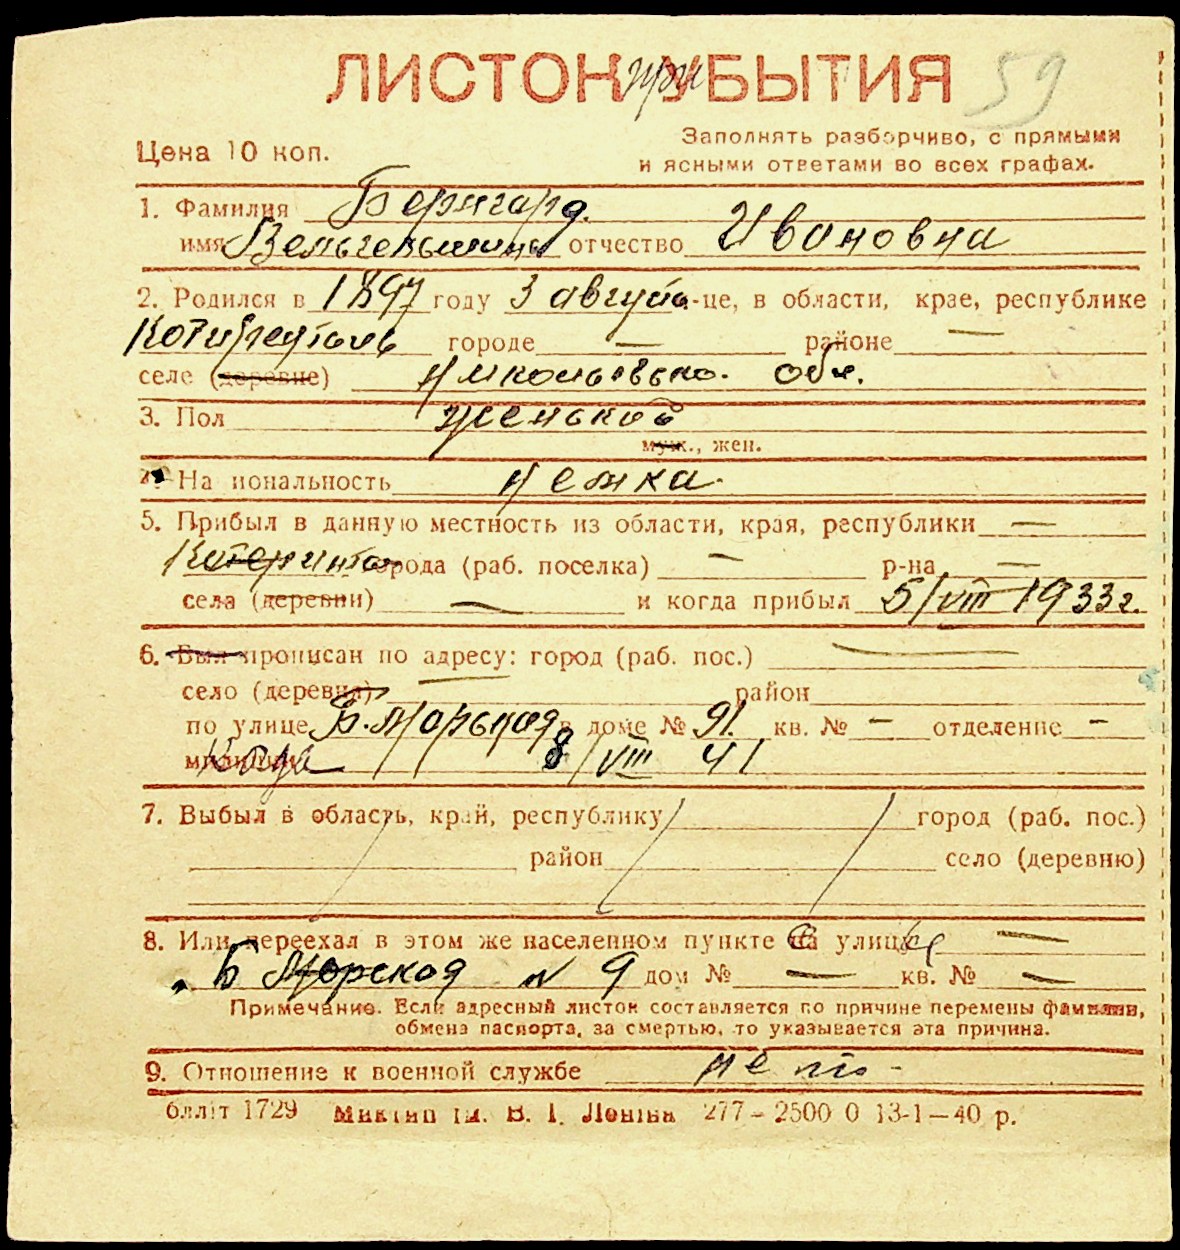 ЛИСТОК УБЫТИЯ при 59
Цена 10 коп.
Заполнять разборчиво, с прямыми
и ясными ответами во всех графах.
1. Фамилия Бернгард
имя Вельгельмина отчество Ивановна
2. Родился в 1897 году 3 августа-це, в области, крае, республике
городе — районе —
селе (деревне) Николаевско. обл.
3. Пол женской
муж., жен.
4. На иональность немка
5. Прибыл в данную местность из области, края, республики —
города (раб. поселка) — р-на —
села (деревни) — и когда прибыл 5/VIII 1933г.
6. Был прописан по адресу: город (раб. пос.) —
село (деревня) — район
по улице Б. Морьская в доме № 91. кв. № — отделение —
милиции Когда 8/VIII 41
7. Выбыл в область, край, республику город (раб. пос.)
район село (деревню)
8. Или переехал в этом же населенном пункте на улицу —
Б Морской N 9 дом № — кв. № —
Примечание. Если адресный листок составляется по причине перемены фамилии,
обмена паспорта, за смертью, то указывается эта причина.
9. Отношение к военной службе нето -
бліт 1729 Миктип ім. В. І. Леніна 277 – 2500 0 13-1 – 40 р.